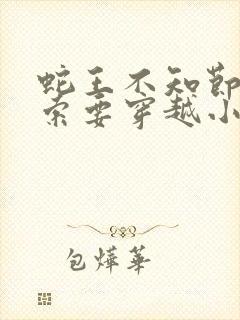 蛇王不知节
索要穿越小
包烨华